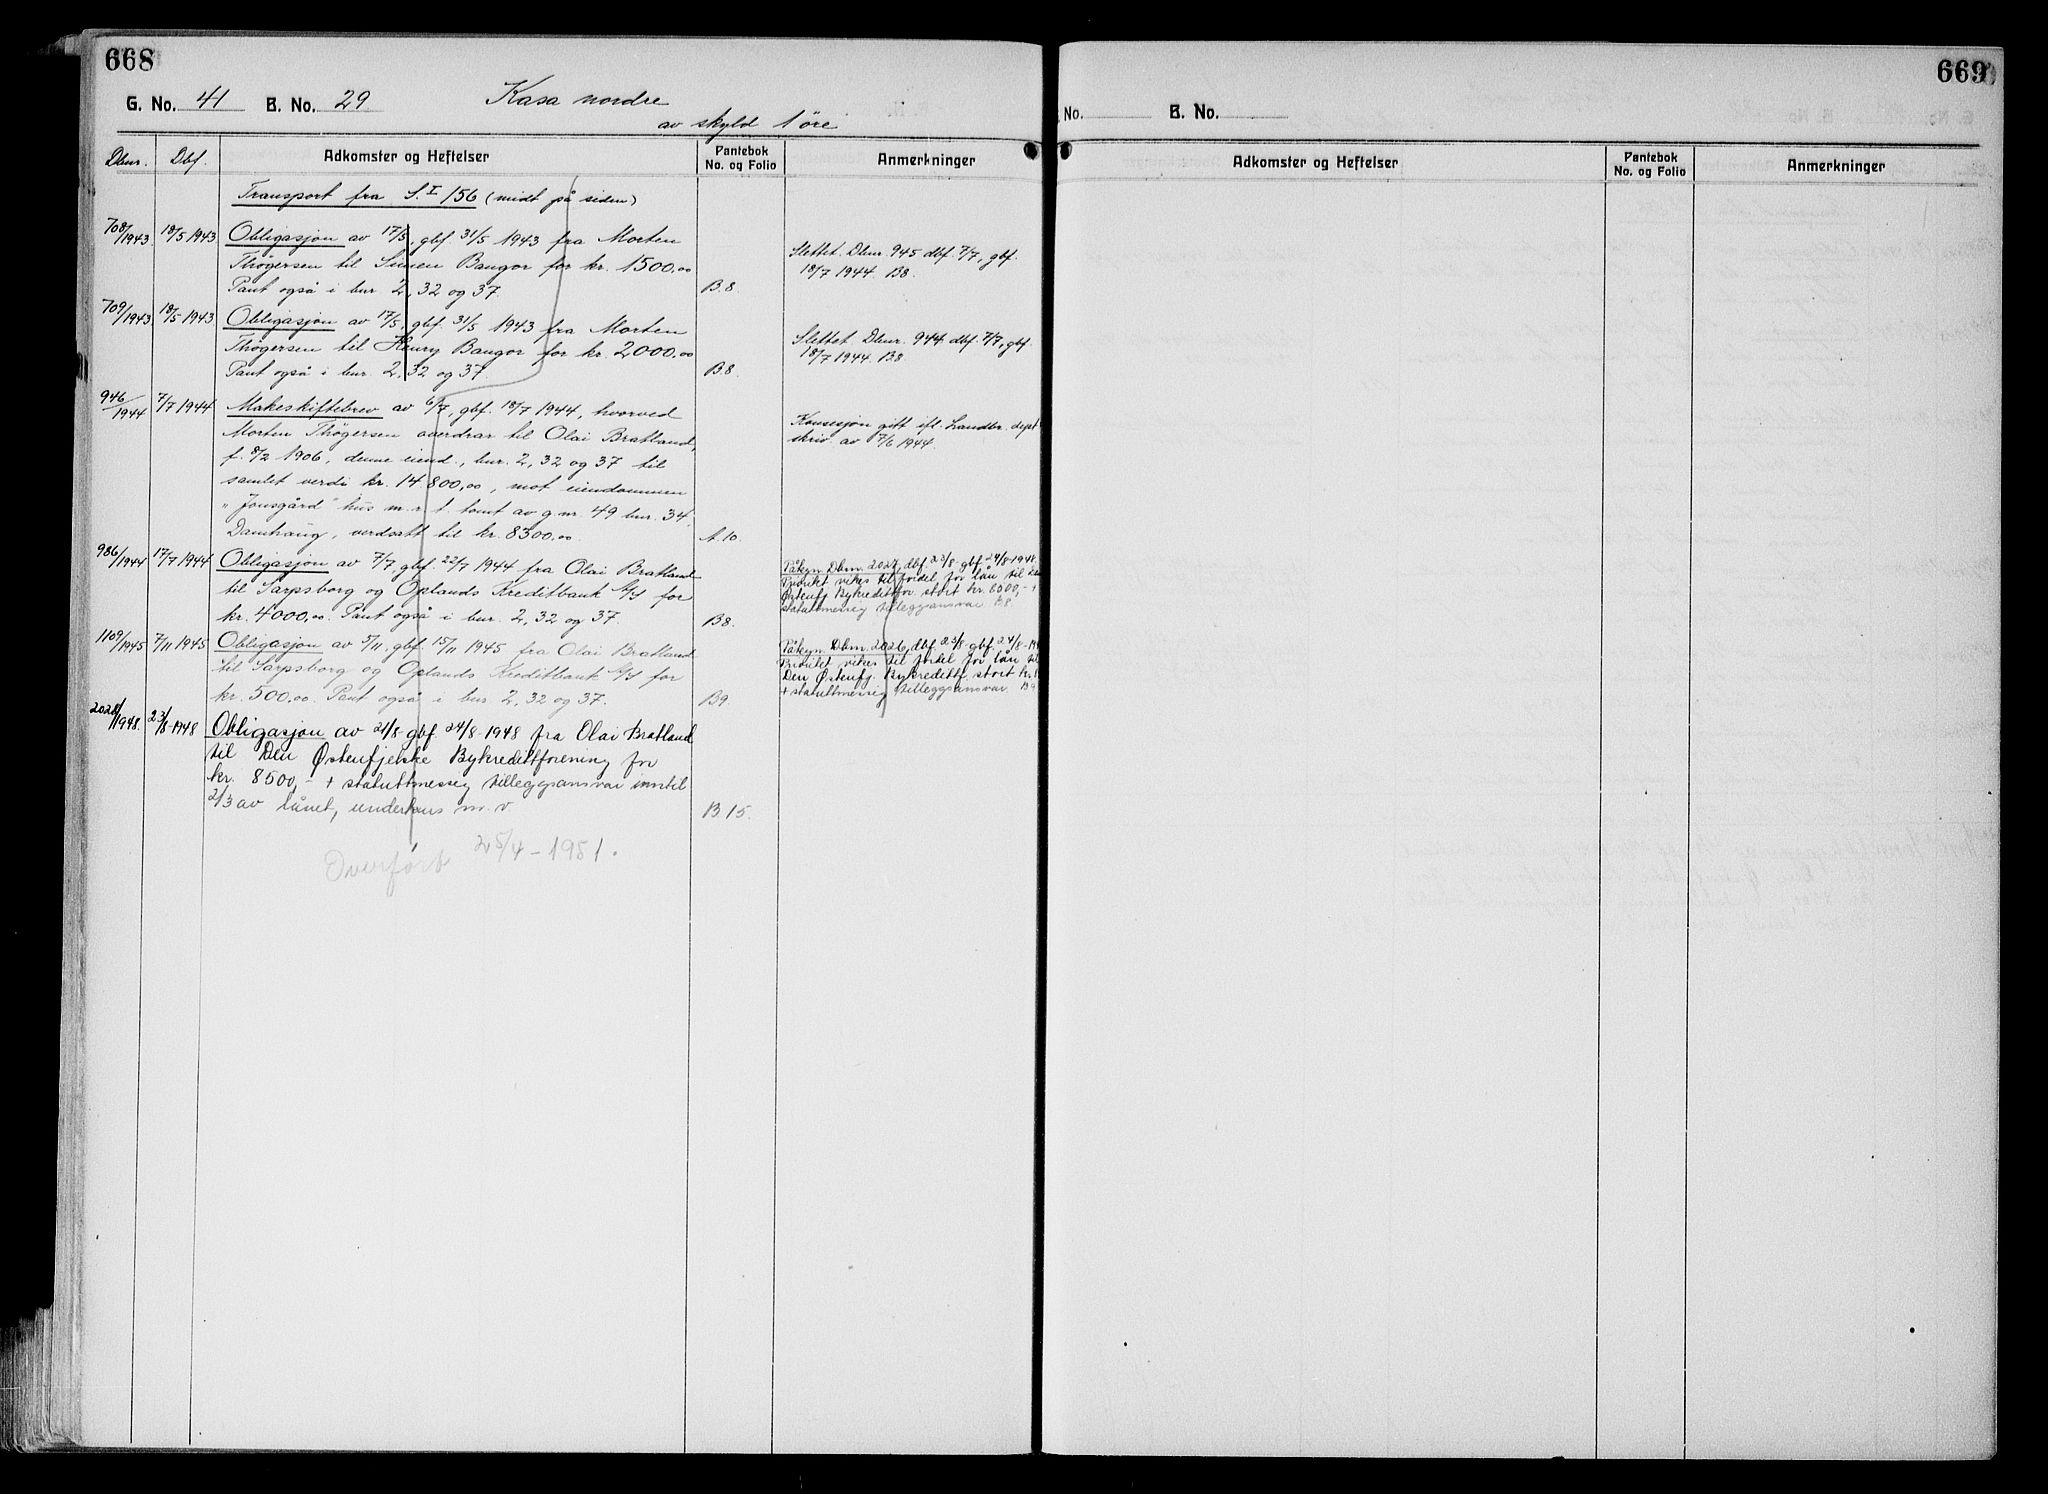 668
G. No. 41 B. No. 29 Kasa nordre
av skyld 1 øre
Dbnr. Dbf. Adkomster og Heftelser Pantebok No. og Folio Anmerkninger
Transport fra S. I /156 (midt på siden)
708/1943 18/5 1943 Obligasjon av 17/5, gbf. 31/5 1943 fra Morten
Thøgersen til Simen Bangor for kr. 1500,00
Pant også i bnr. 2, 32 og 37. B.8.
Slettet. Dbnr. 945 dbf. 7/7, gbf.
18/7 1944. B8.
709/1943 18/5 1943 Obligasjon av 17/5, gbf. 31/5 1943 fra Morten
Thøgersen til Henry Bangor for kr. 2000,00
Pant også i bnr. 2, 32 og 37 B.8.
Slettet Dbnr. 944 dbf. 7/7, gbf.
18/7 1944. B8
946/1944 7/7 1944 Makeskiftebrev av 6/7, gbf. 18/7 1944, hvorved
Morten Thøgersen overdrar til Olai Bratland,
f. 8/2 1906, denne eiend., bnr. 2, 32 og 37 til
samlet verdi kr. 14.800,00, mot eiendommen
"Jonsgård" hus m. r. t. tomt av g.nr. 49 bnr. 34,
Damhaug, verdsatt til kr. 8300,00. A.10.
Konsesjon gitt ifl. Landbr. dept
skriv. av 7/6 1944.
986/1944 17/7 1944 Obligasjon av 7/7, gbf. 22/7 1944 fra Olai Bratland
til Sarpsborg og Oplands Kreditbank A/S for
kr. 4000,00. Pant også i bnr. 2, 32 og 37. B8.
Påtegn. Dbnr. 2027, dbf. 23/8 gbf. 24/8-1948.
Prioritet vikes til fordel for lån til Den
Østenfj. Bykredittfor. stort kr. 8500,- +
statuttmessig tilleggsansvar. B8.
1109/1945 7/11 1945 Obligasjon av 5/11, gbf. 15/11 1945 fra Olai Bratland
til Sarpsborg og Oplands Kreditbank A/S for
kr. 500,00. Pant også i bnr. 2, 32 og 37. B9.
Påtegn. Dbnr. 2026, dbf. 23/8 gbf. 24/8-194
Prioritet vikes til fordel for lån til
Den Østenfj. Bykredittf. stort kr.
+ statuttmessig tilleggsansvar. B9
2028/1948. 23/8-1948 Obligasjon av 21/8 gbf. 24/8-1948 fra Olai Bratland
til Den Østenfjelske Bykredittforening for
kr. 8500,- + statuttmessig tilleggsansvar inntil
2/3 av lånet, underkurs m.v. B.15.
Overført 25/4-1951.
669
No. B. No.
Adkomster og Heftelser Pantebok No. og Folio Anmerkninger